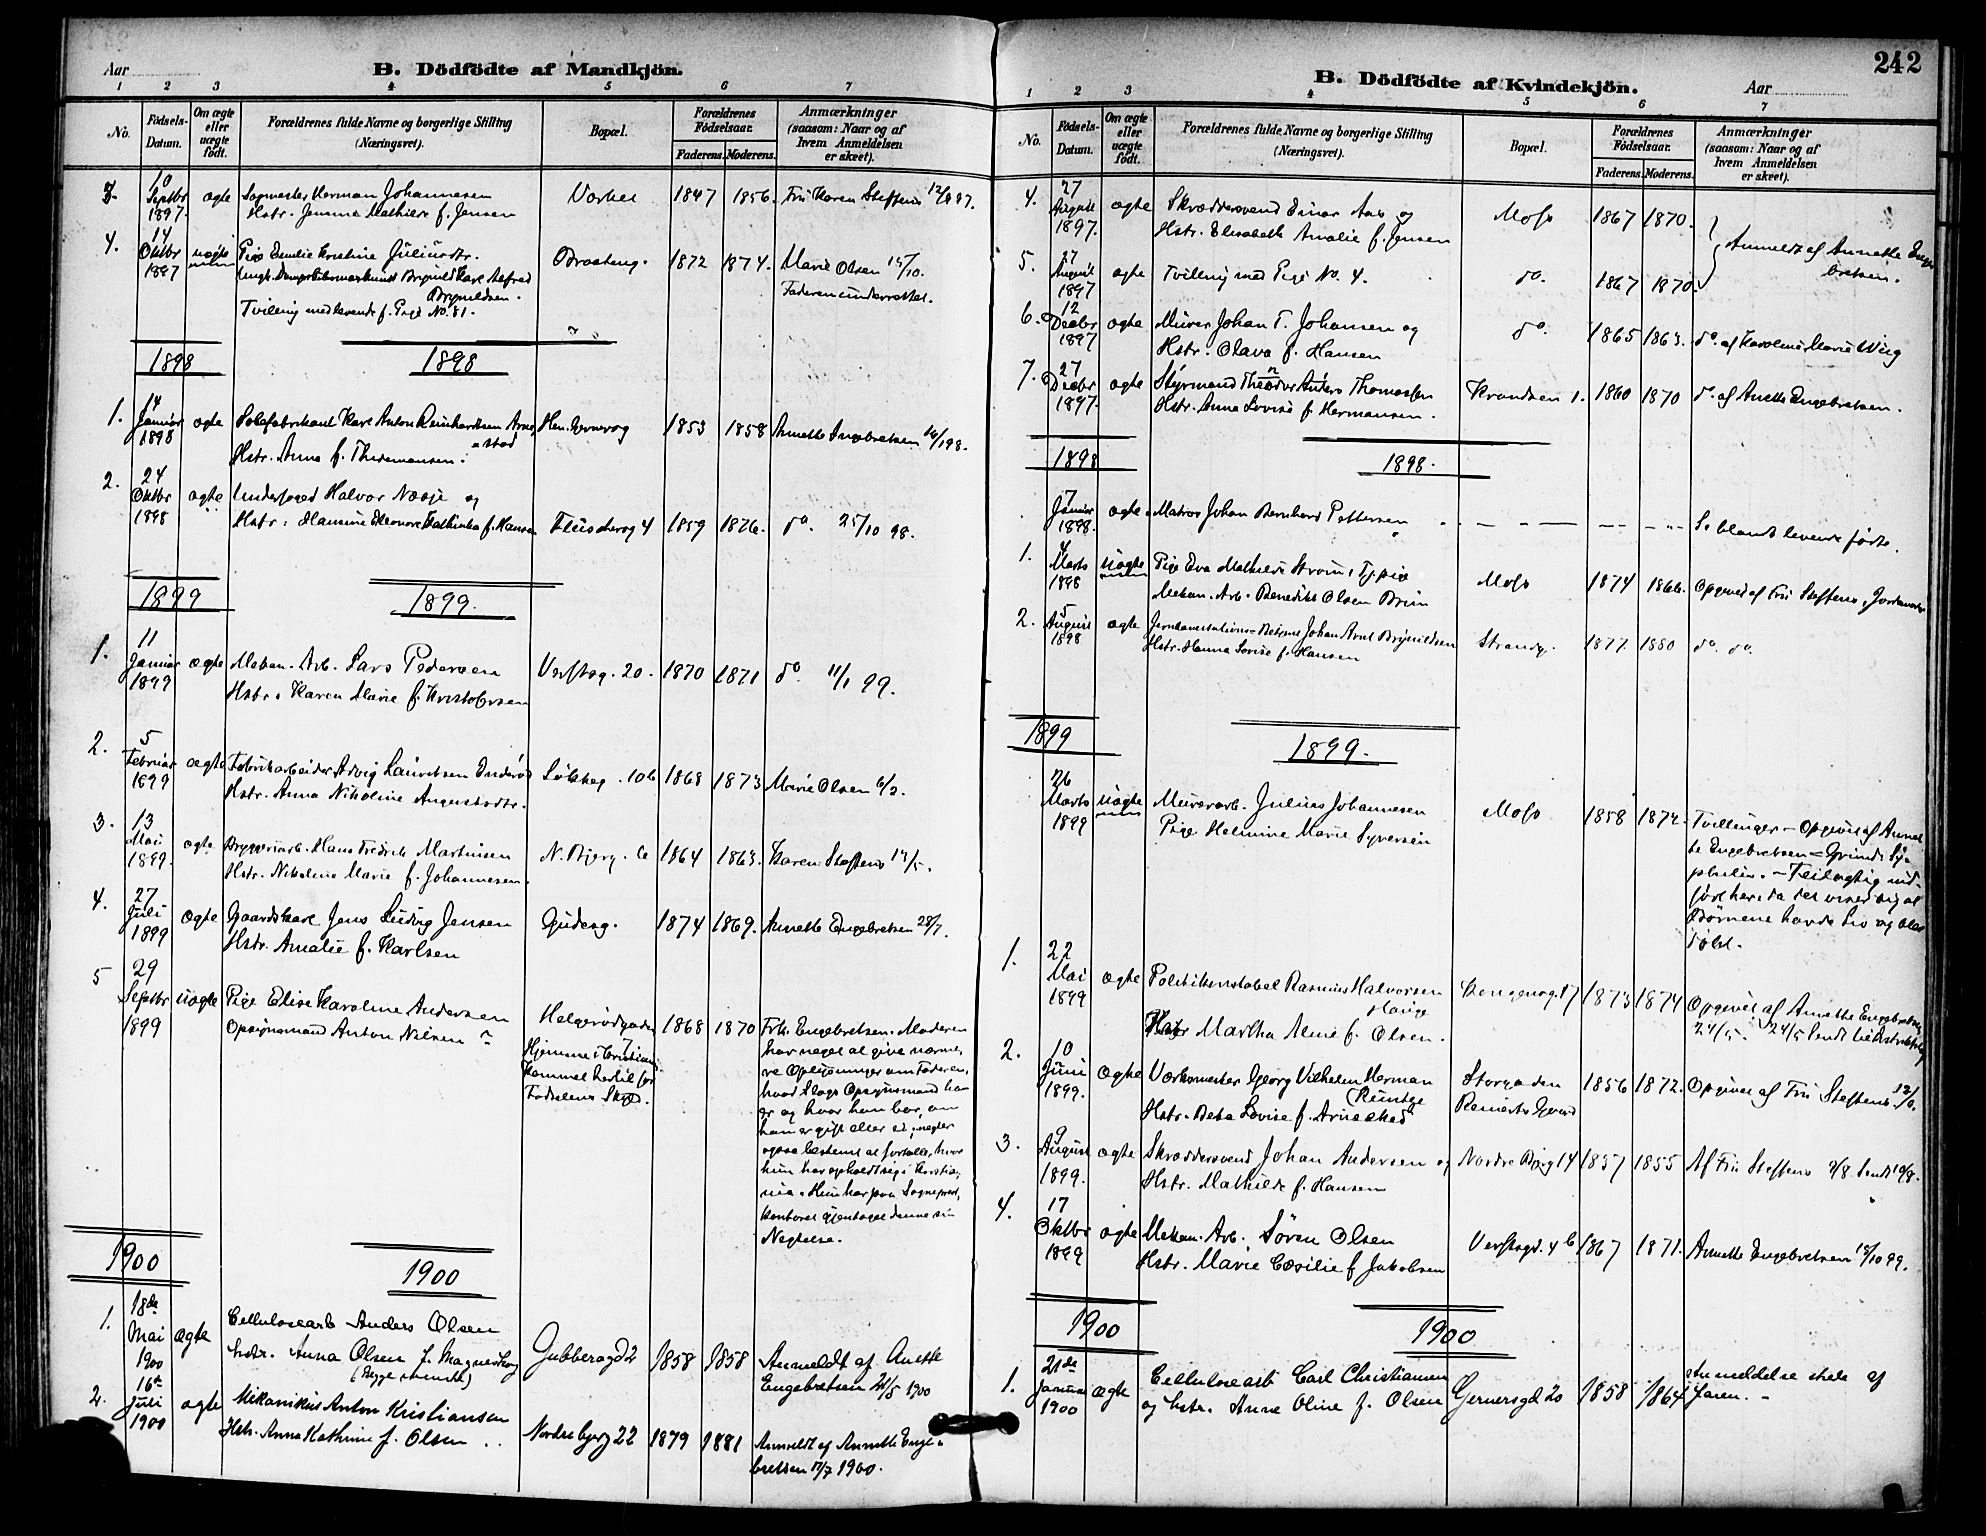 Aar
B. Dödfödte af Mandkjön.
1 2 3 4 5 6 7
No.
Födsels-
Datum.
Om ægte
eller
uægte
födt.
Forældrenes fulde Navne og borgerlige Stilling
(Næringsvei).
Bopæl.
Forældrenes
Födselsaar.
Faderens. Moderens.
Anmærkninger
(saasom: Naar og af
hvem Anmeldelsen
er skeet).
3. 10 Septbr 1897. ægte
Sagmester Herman Johannesen
Hstr. Jemima Mathilde f. Jensen
Varker 1847 1856. Fru Karen Steffens 12/9 97.
4. 14 Oktbr 1897 uægte
Pige Emilie Kristine Juliusdtr.
Brynildsen.
Tvilling med levende f. Pige No. 81.
1872 1874. Marie Olsen 15/10.
Faderen underrettet.
1898
1898
1. 14 Januar 1898 ægte
Karl Anton Reinhardtsen
Hstr. Anna f. Thidemansen.
Hen. Gernersg 1853 1858 Annette Engebretsen
2. 24 Oktbr 1898 ægte
Underfoged Halvor Næsje og
Hstr. Hansine Eleonore Kathinka f. Hansen
1859 1876. do. 25/10 98.
1899
1899.
1. 11 Januar 1899 ægte
Mekan. Arb. Lars Pedersen
Hstr. Karen Marie f. Kristofersen
Verftsg. 20. 1870 1871 do. 11/1 99.
2. 5 Februar 1899 ægte
Fabrikarbeider Lauritsen
Hstr. Anna Nikoline Augustsdtr.
10b 1868 1873 Marie Olsen 6/2.
3. 13 Mai 1899. ægte
Bryggeriarb. Hans Fredrik Martinsen
Hstr. Nikoline Marie f. Johannesen.
N. Bjerg. 6 1864 1863. Karen Steffens
4. 27 Juli 1899 ægte
Gaardskarl Jens Ludvig Jensen
Hstr. Amalie f. Karlsen
Gudesg. 1874 1869. Annette Engebretsen 28/7.
5 29 Septbr 1899 uægte
Pige Elise Karoline Andersen
Opsynsmand Anton Nilsen
Helgerødgaden
Hjemme i Kristiania
kommet hertil for
Fødselens Skyld.
1868 1870
Frk. Engebretsen. Moderen
har neget at give nærme-
re Oplysninger om Faderen,
hvad Slags Opsynsmand han
er og hvor han bor, om
han er gift eller ei, negter
ogsaa bestemt at fortælle, hvor
hun har opholdt sig i Kristia-
nia. Hun har paa Sogneprest-
kontoret gjentaget denne sin
Negtelse.
1900
1900
1. 18de Mai 1900 ægte
Cellulosearb Anders Olsen
hstr. Anna Olsen f. Magneshaug
Gubberogd 2 1858 1858
Anmeldt af Anette
Engebretsen 21/5 1900
2. 16de Juli 1900 ægte
Mekanikus Anton Kristiansen
Hstr. Anna Kathrine f. Olsen
Nordre bjerg 22 1879 1881
Anmeldt af Annette Enge-
bretsen 17/7 1900.
242
B. Dödfödte af Kvindekjön.
Aar
1 2 3 4 5 6 7
No.
Födsels-
Datum.
Om ægte
eller
uægte
födt.
Forældrenes fulde Navne og borgerlige Stilling
(Næringsvei).
Bopæl.
Forældrenes
Födselsaar.
Faderens. Moderens.
Anmærkninger
(saasom: Naar og af
hvem Anmeldelsen
er skeet).
4. 27 August 1897. ægte
Skræddersvend Einar Aas og
Hstr. Elisabeth Amalie f. Jensen
Moss 1867 1870.
Anmeldt af Annette Enge-
bretsen.
5. 27 August 1897 ægte
Tvilling med Pige No. 4.
do. 1867 1870.
6. 12 Decbr 1897 ægte
Murer Johan T. Johansen og
Hstr. Olava f. Hansen
do. 1865 1863. do. af Karoline Marie Wiig
7. 27 Decbr 1897. ægte
Styrmand Theodor Anders Thomassen
Hstr. Anna Lovise f. Hermansen.
Krandsen 1. 1860 1870 do. af Anette Engebretsen.
1898
1898.
7 Januar 1898. ægte
Matros Johan Bernhard Pettersen
Se blandt levende fødte.
1. 4 Marts 1898 uægte
Pige Eva Mathilde Strøm, Tj.pige
Mekan. Arb. Benedikt Olsen Brun
Moss 1874 1866. Opgivet af Fru Steffens, Jordemoder
2. 5 August 1898 ægte
Jernbanestations-Betjent Johan Arnt Brynildsen
Hstr. Hanna Lovise f. Hansen
Strandg. 1877 1880 do. do.
1899
1899.
26 Marts 1899 uægte
Murerarb. Julius Johannesen
Pige Helmine Marie Syversen
Moss 1858 1872.
Tvillinger - Opgivet af Annet-
te Engebretsen = Grund: Sy-
philis. - Feilagtig ind-
ført her, da det viser sig at
Børnene havde Liv og blev
døbt.
1. 22 Mai 1899 ægte
Politikonstabel Rasmus Halvorsen
Hauge
Hstr Martha Alme f. Olsen.
Kongensg. 17 1873 1874
Opgivet af Annette Engebretsen
24/5. 24/5 Sendt
2. 10 Juni 1899. ægte
Værksmester Georg Vilhelm Herman
Runtge
Hstr. Beta Lovise f. Arnesked
Storgaden
1856 1872. Opgivet af Fru Steffens 12/6.
3. 9 August 1899. ægte
Skræddersvend Johan Andersen og
Hstr. Mathilde f. Hansen
Nordre Bjerg 14 1857 1855 Af Fru Steffens 9/8. Sendt 10/8.
4. 17 Oktbr 1899 ægte
Mekan. Arb. Søren Olsen
Hstr. Marie Cæsilie f. Jakobsen
Verftsgd. 4 b 1867 1871. Annette Engebretsen 18/10 99.
1900
1900
1. 21de Januar 1900 ægte
Cellulosearb Carl Christiansen
og hstr. Anne Oline f. Olsen
Gernersgd 20 1858 1864
Anmeldelse skete af
Faren. -